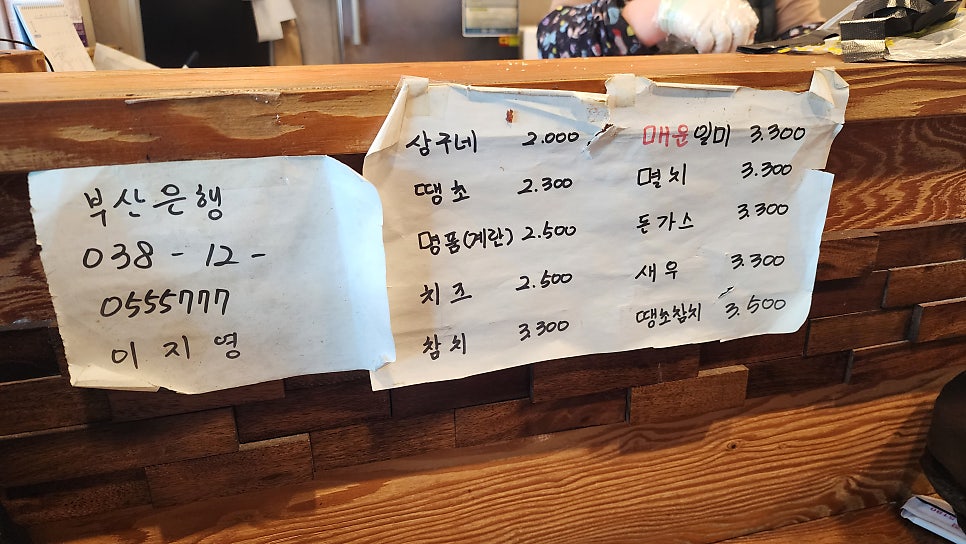 부산은행
038-12-
0555777
이지영
상구네 2.000
땡초 2.300
명품(계란) 2.500
치즈 2.500
참치 3,300
매운일미 3.300
멸치 3.300
돈가스 3.300
새우 3.300
땡초참치 3.500